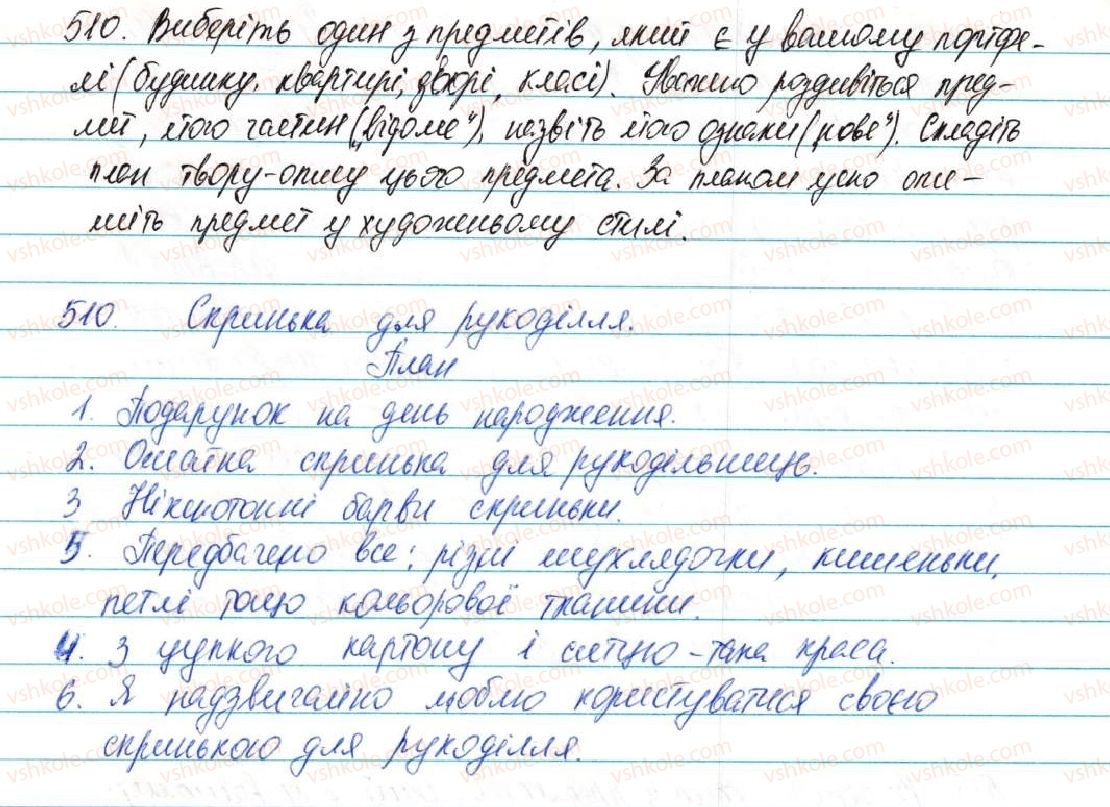 510. Виберіть один з предметів, який є у вашому портфе-
лі (будинку, квартирі, дворі, класі). Уважно роздивіться пред-
мет, його частин („відоме"), назвіть його ознаки („нове"). Складіть
план твору-опису цього предмета. За планом усно опи-
шіть предмет у художньому стилі.
510. Скринька для рукоділля.
План
1. Подарунок на день народження.
2. Ошатна скринька для рукодільниць.
3 Ніжнотонні барви скриньки.
5. Передбачено все: різні шухлядочки, кишеньки,
петлі тощо кольорової тканини.
4. З цупкого картону і ситцю - така краса.
6. Я надзвичайно люблю користуватися своєю
скринькою для рукоділля.